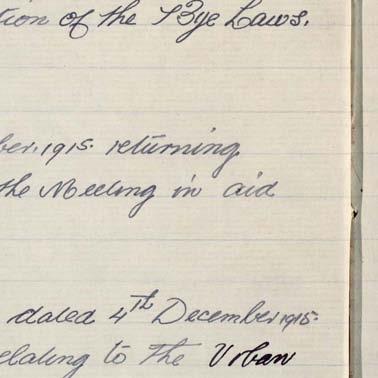 tion of the Bye Laws.
ber. 1915. returning
the Meeting in aid
dated 4th December 1915.
elating to the Urban